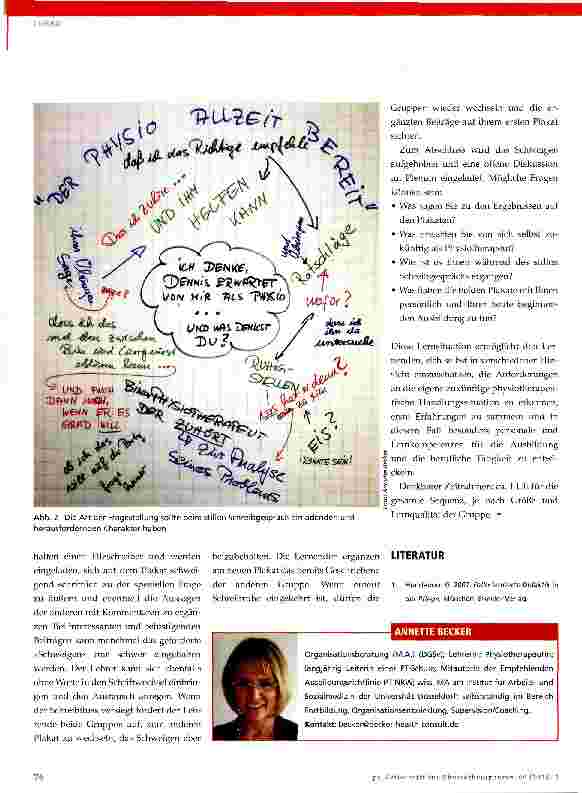 "DER PHYSIO ALLZEIT BEREIT"
daß ich das Richtige empfehle
Das ich zuhöre ...
UND IHM
HELFEN
KANN
Ratschläge
wofür?
ICH DENKE,
DENNIS ERWARTET
VON MIR ALS PHYSIO
...
UND WAS DENKST
DU?
dass ich
ihn da
untersuche
dass ich das
RUHIG-
STELLEN
UND AUCH
DANN NOCH,
WENN ER ES
GRAD WILL
DER ZUHÖRT
EIS?
KÖNNTE SEIN!
Zur Analyse
seines Problems
Abb. 2 Die Art der Fragestellung sollte beim stillen Schreibgespräch einladenden und
herausfordernden Charakter haben
Gruppen wieder wechseln und die er-
gänzten Beiträge auf ihrem ersten Plakat
sichten.
Zum Abschluss wird das Schweigen
aufgehoben und eine offene Diskussion
im Plenum eingeleitet. Mögliche Fragen
können sein:
• Was sagen Sie zu den Ergebnissen auf
den Plakaten?
• Was erwarten Sie von sich selbst zu-
künftig als Physiotherapeut?
• Wie ist es Ihnen während des stillen
Schreibgesprächs ergangen?
• Was haben die beiden Plakate mit Ihnen
persönlich und Ihrer heute beginnen-
den Ausbildung zu tun?
Diese Lernsituation ermöglicht den Ler-
nenden, sich selbst in verschiedener Hin-
sicht einzuschätzen, die Anforderungen
an die eigene zukünftige physiotherapeu-
tische Handlungssituation zu erkennen,
erste Erfahrungen zu sammeln und in
diesem Fall besonders personale und
Lernkompetenzen für die Ausbildung
und die berufliche Tätigkeit zu entwi-
ckeln.
Denkbarer Zeitrahmen: ca. 1 UE für die
gesamte Sequenz, je nach Größe und
Lernqualität der Gruppe.
halten einen Filzschreiber und werden
eingeladen, sich auf dem Plakat schwei-
gend schriftlich zu der speziellen Frage
zu äußern und eventuell die Aussagen
der anderen mit Kommentaren zu ergän-
zen. Bei interessanten und belustigenden
Beiträgen kann manchmal das geforderte
»Schweigen« nur schwer eingehalten
werden. Der Lehrer kann sich ebenfalls
ohne Worte in den Schriftwechsel einbrin-
gen und den Austausch anregen. Wenn
der Schreibfluss versiegt fordert der Leh-
rende beide Gruppen auf, zum anderen
Plakat zu wechseln, das Schweigen aber
beizubehalten. Die Lernenden ergänzen
am neuen Plakat das bereits Geschriebene
der anderen Gruppe. Wenn erneut
Schreibruhe eingekehrt ist, dürfen die
LITERATUR
ANNETTE BECKER
Organisationsberatung (M.A.) (DGSv), Lehrerin; Physiotherapeutin;
langjährig Leiterin einer PT-Schule; Mitautorin der Empfehlenden
Ausbildungsrichtlinie PT NRW; wiss. MA am Institut für Arbeits- und
Sozialmedizin der Universität Düsseldorf; selbstständig im Bereich
Fortbildung, Organisationsentwicklung, Supervision/Coaching.
74